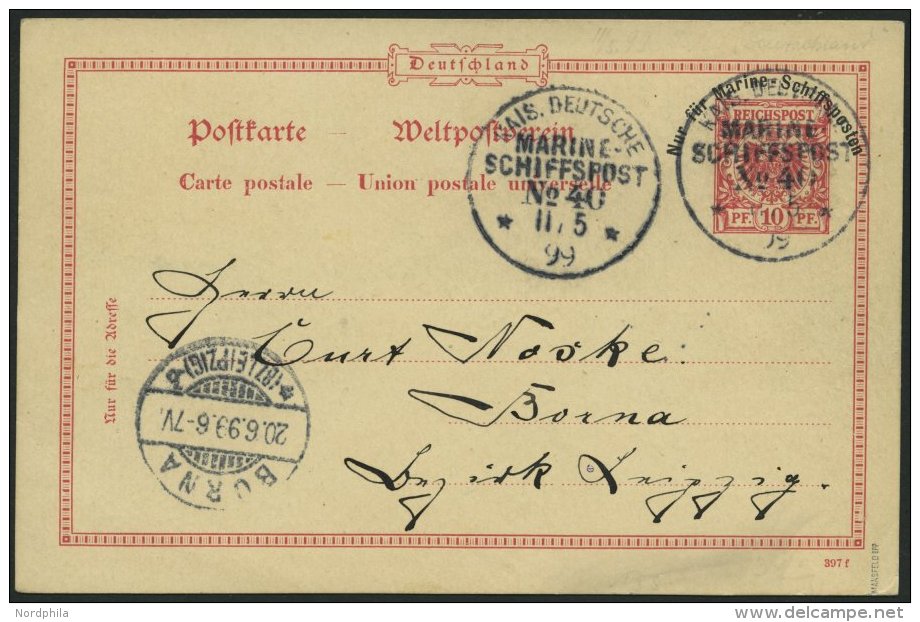 Deutschland
Nur für Marine-Schiffsposten
REICHSPOST
PF. 10 PF.
Postkarte — Weltpostverein
Carte postale — Union postale universelle
KAIS. DEUTSCHE
MARINE-
SCHIFFSPOST
No 40
11/5
99
KAIS. DEUTSCHE
MARINE-
SCHIFFSPOST
No 40
Nur für die Adresse
Herrn
Curt Noske
Borna
Bezirk Leipzig.
BORNA
20.6.99.6-7V.
*(BZ.LEIPZIG)
397 f
MANSFELD BPP
Nordphila
delcampe.net